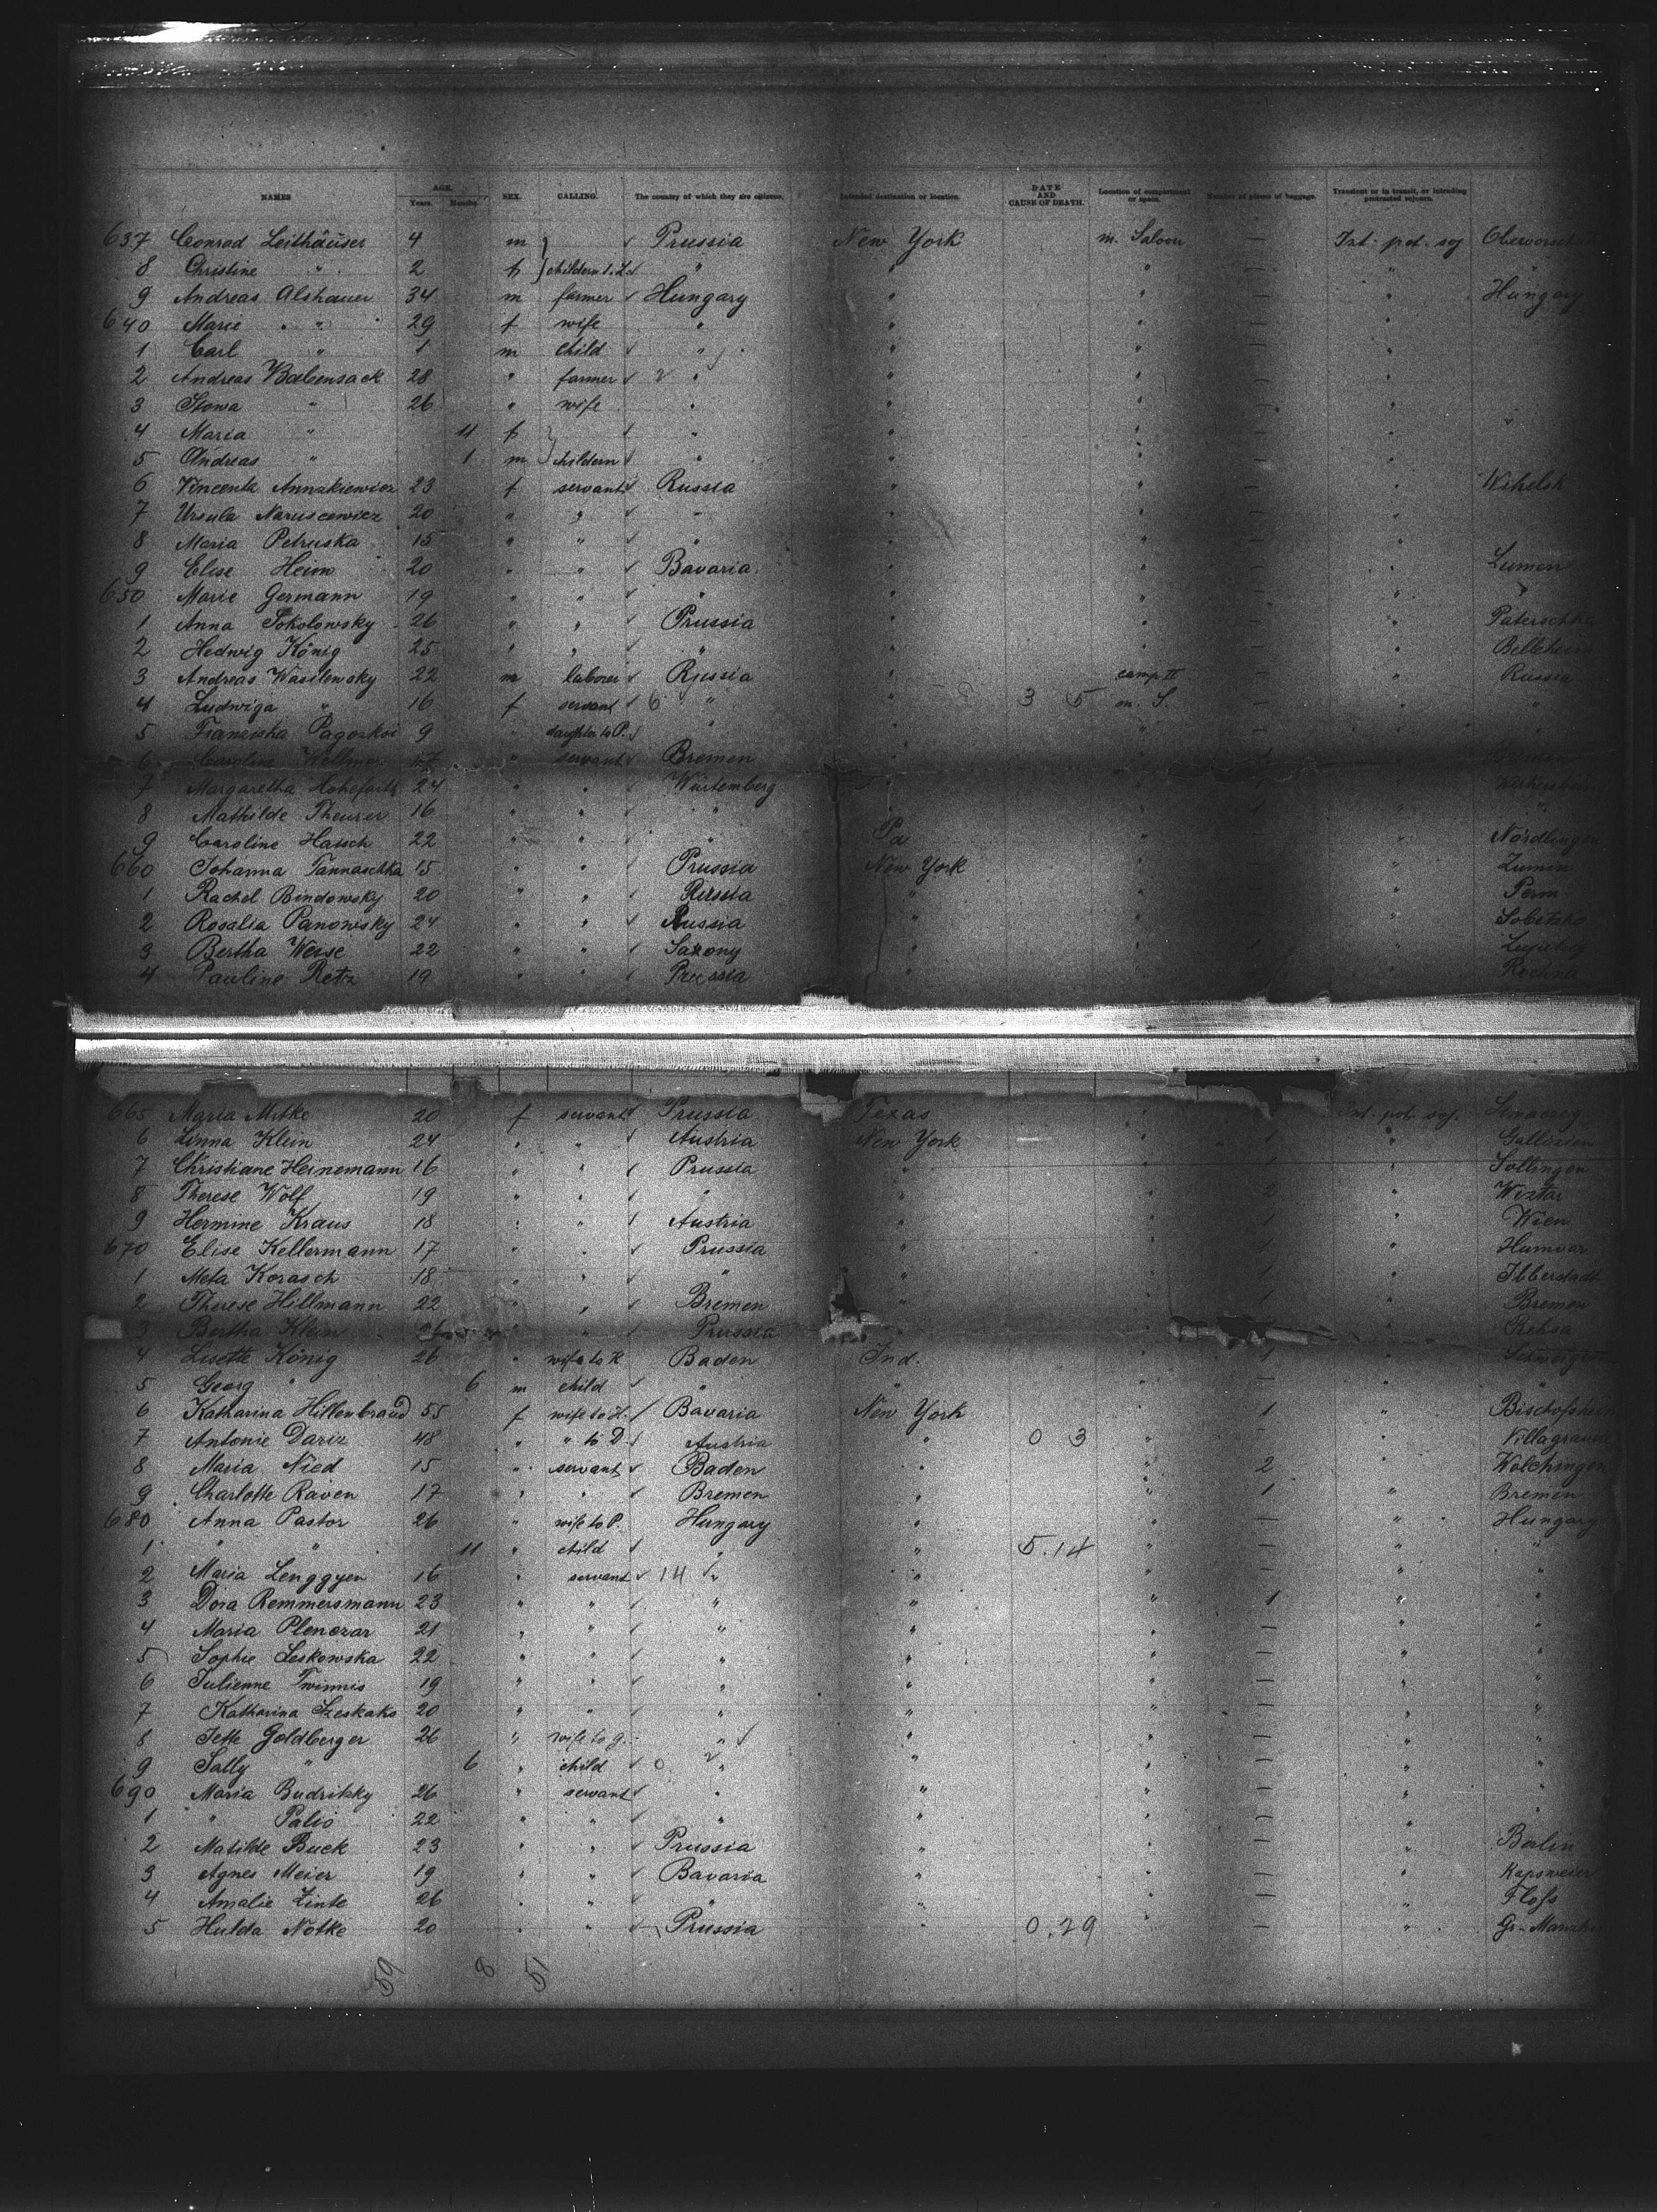 NAMES AGE. Years. Months SEX. CALLING. The country of which they are citizens. Intended destination or location. DATE AND CAUSE OF DEATH. Location of compartment or space. Number of pieces of baggage. Transient or in transit, or intending protracted sojourn.
637 Conrad Leithäuser 4 m Prussia New York m. Saloon — Int. pot. soj
8 Christine " 2 f childern t. L. " " " — "
9 Andreas Alshauer 34 m farmer Hungary " " — " Hungary
640 Marie " 29 f wife " " " — "
1 Carl " 1 m child " " " — "
2 Andreas Babensack 28 " farmer 2 " " " — "
3 Ilowa " 26 " wife " " " — " "
4 Maria " 11 f " " " — "
5 Andreas " 1 m childern " " " — "
6 Vincenta Annskiewicz 23 f servant Russia " " — "
7 Ursula Naruscewicz 20 " " " " " — "
8 Maria Petruska 15 " " " " " — "
9 Elise Heim 20 " " Bavaria. " " — " Lumen
650 Marie Germann 19 " " " " " — " "
1 Anna Sokolowsky 26 " " Prussia " " — "
2 Hedwig König 25 " " " " " — " Bellheim
3 Andreas Wasilewsky 22 m laborer Russia " camp II — " Russia
4 Ludwiga " 16 f servant 6 " " 3 5 m. S. — " "
5 Franziska Pagorkoi 9 " daughter to P. " " " — " "
6 Caroline Wellmer 17 " servant Bremen Bremen
7 Margaretha Hohefarth 24 " " Würtemberg " "
8 Mathilde Theurer 16 " " " " 1 " "
9 Caroline Haisch 22 " " " Pa " " Nördlingen
660 Johanna Tannaschka 15 " " Prussia New York " "
1 Rachel Bindowsky 20 " " Russia " " " Perm
2 Rosalia Panowisky 24 " " Russia " " "
3 Bertha Weise 22 " " Saxony " " 1 "
4 Pauline Retz 19 " " Prussia " "
665 Maria Mitke 20 f servant Prussia Texas " Int. pot. soj.
6 Linna Klein 24 " " Austria New York " 1 " Gallizien
7 Christiane Heinemann 16 " " Prussia " " 1 " Sollingen
8 Therese Wolf 19 " " " " " 2 "
9 Hermine Kraus 18 " " Austria " " 1 " Wien
670 Elise Kellermann 17 " " Prussia " " 1 " Humvar
1 Meta Korasch 18 " " " " " 1 " Ibberstadt
2 Therese Hillmann 22 " " Bremen " " 1 " Bremen
3 Bertha Klein " " Prussia " " Rehsa
4 Lisette König 26 " wife to K Baden Ind. " 1 "
5 Georg " 6 m child " " " — " "
6 Katharina Hillenbrand 55 f wife to H. Bavaria New York " 1 "
7 Antonie Dariz 48 " " to D. Austria " 0 3 " — "
8 Maria Nied 15 " servant Baden " " 2 " Wölchingen
9 Charlotte Raven 17 " " Bremen " " 1 " Bremen
680 Anna Pastor 26 " wife to P. Hungary " " — " Hungary
1 " " 11 " child " " 5.14 " — " "
2 Maria Lenggyen 16 " servant 14 " " " — " "
3 Dora Remmersmann 23 " " " " " 1 " "
4 Maria Plenczar 21 " " " " " — " "
5 Sophie Leskowska 22 " " " " " — " "
6 Julienne Twinnis 19 " " " " " — " "
7 Katharina Szeskaks 20 " " " " " — " "
8 Jette Goldberger 26 " wife to g. " " " — " "
9 Sally " 6 " child 0 2 " " " — " "
690 Maria Budritzky 26 " servant " " " — " "
1 " Palio 22 " " " " " — " "
2 Matilde Buck 23 " " Prussia " " — " Berlin
3 Agnes Meier 19 " " Bavaria " " — " Kapsweier
4 Amalie Linte 26 " " " " " — " Floss
5 Hulda Notke 20 " " Prussia " 0.29 " — "
59 8 51